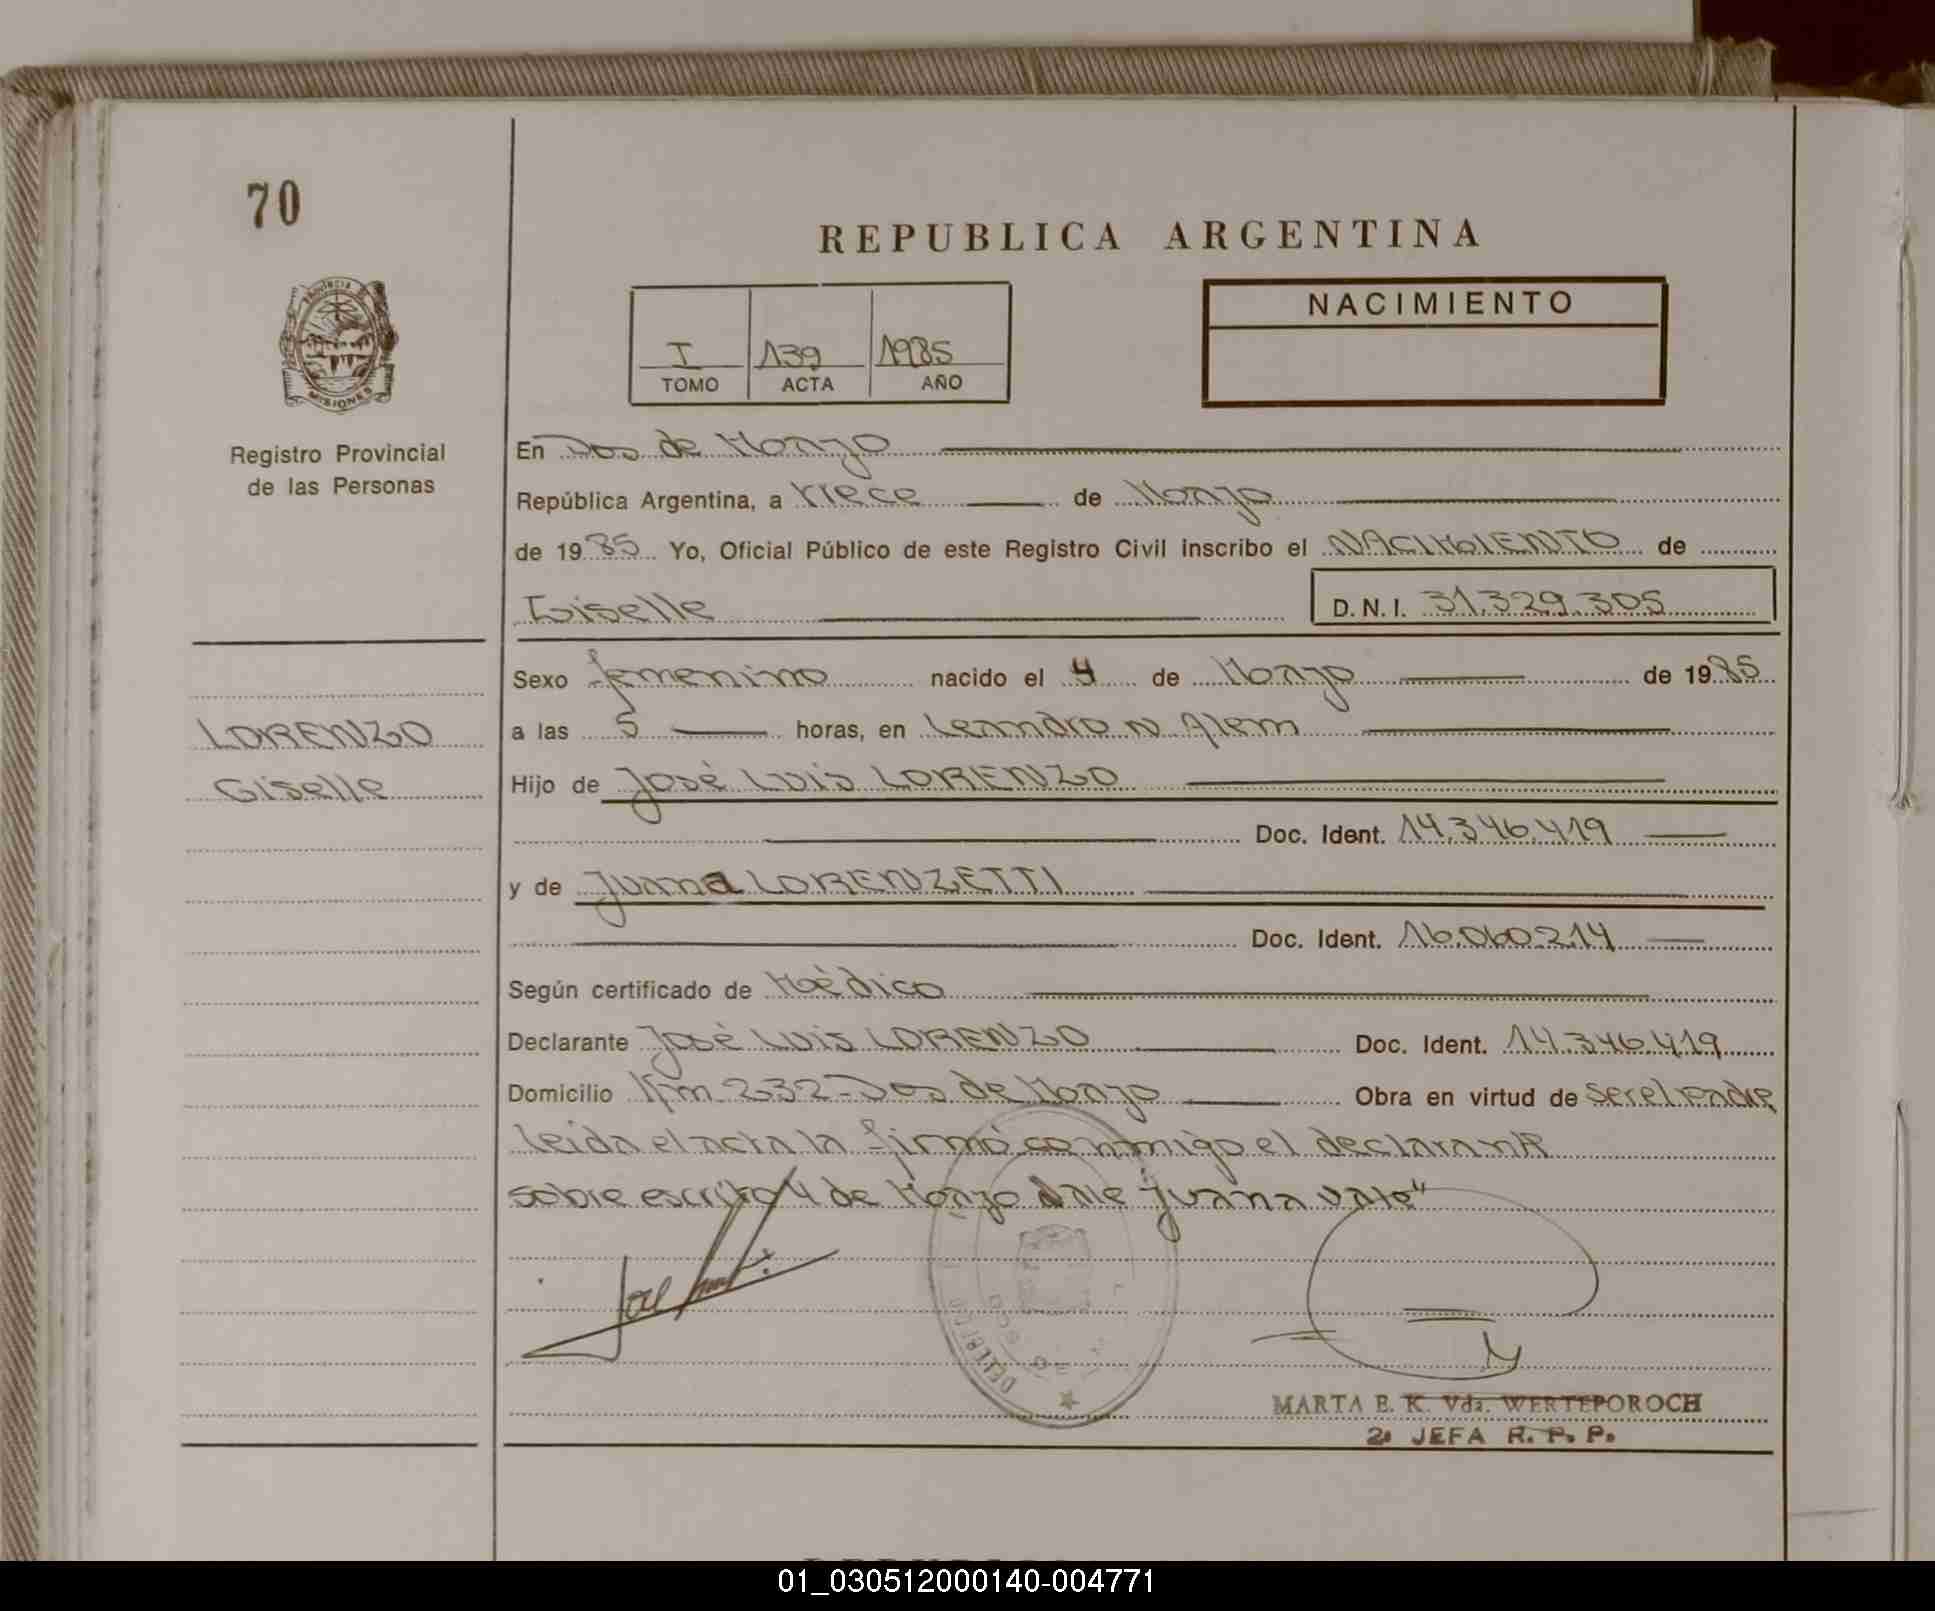 70
REPUBLICA ARGENTINA
NACIMIENTO
I 139 1985
TOMO ACTA AÑO
PROVINCIA DE
MISIONES
Registro Provincial
de las Personas
En Dos de Mayo
República Argentina, a trece de Mayo
de 1985 Yo, Oficial Público de este Registro Civil inscribo el NACIMIENTO de
Giselle D.N.I. 31.329.305
Sexo femenino nacido el 4 de Mayo de 1985
LORENZO
a las 5 horas, en Leandro N Alem
Giselle
Hijo de José Luis LORENZO
Doc. Ident. 14.346.419
y de Juana LORENZETTI
Doc. Ident. 16.060.214
Según certificado de Médico
Declarante José Luis LORENZO Doc. Ident. 14.346.419
Domicilio Km 232-Dos de Mayo Obra en virtud de ser el padre
leida el acta la firmó conmigo el declarante
sobre escrito 4 de Mayo vale Juana vale"
MARTA E. K. Vda. WERTEPOROCH
2ª JEFA R. P. P.
01_030512000140-004771